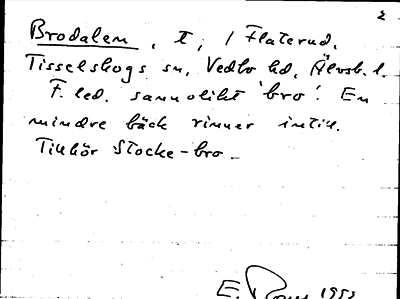 2
Brodalen, t, i Flaterud,
Tisselskogs sn, Vedbo hd, Älvsb. l.
F. led. sannolikt 'bro'. En
mindre bäck rinner intill.
Tillhör Stocke-bro
E. 1955